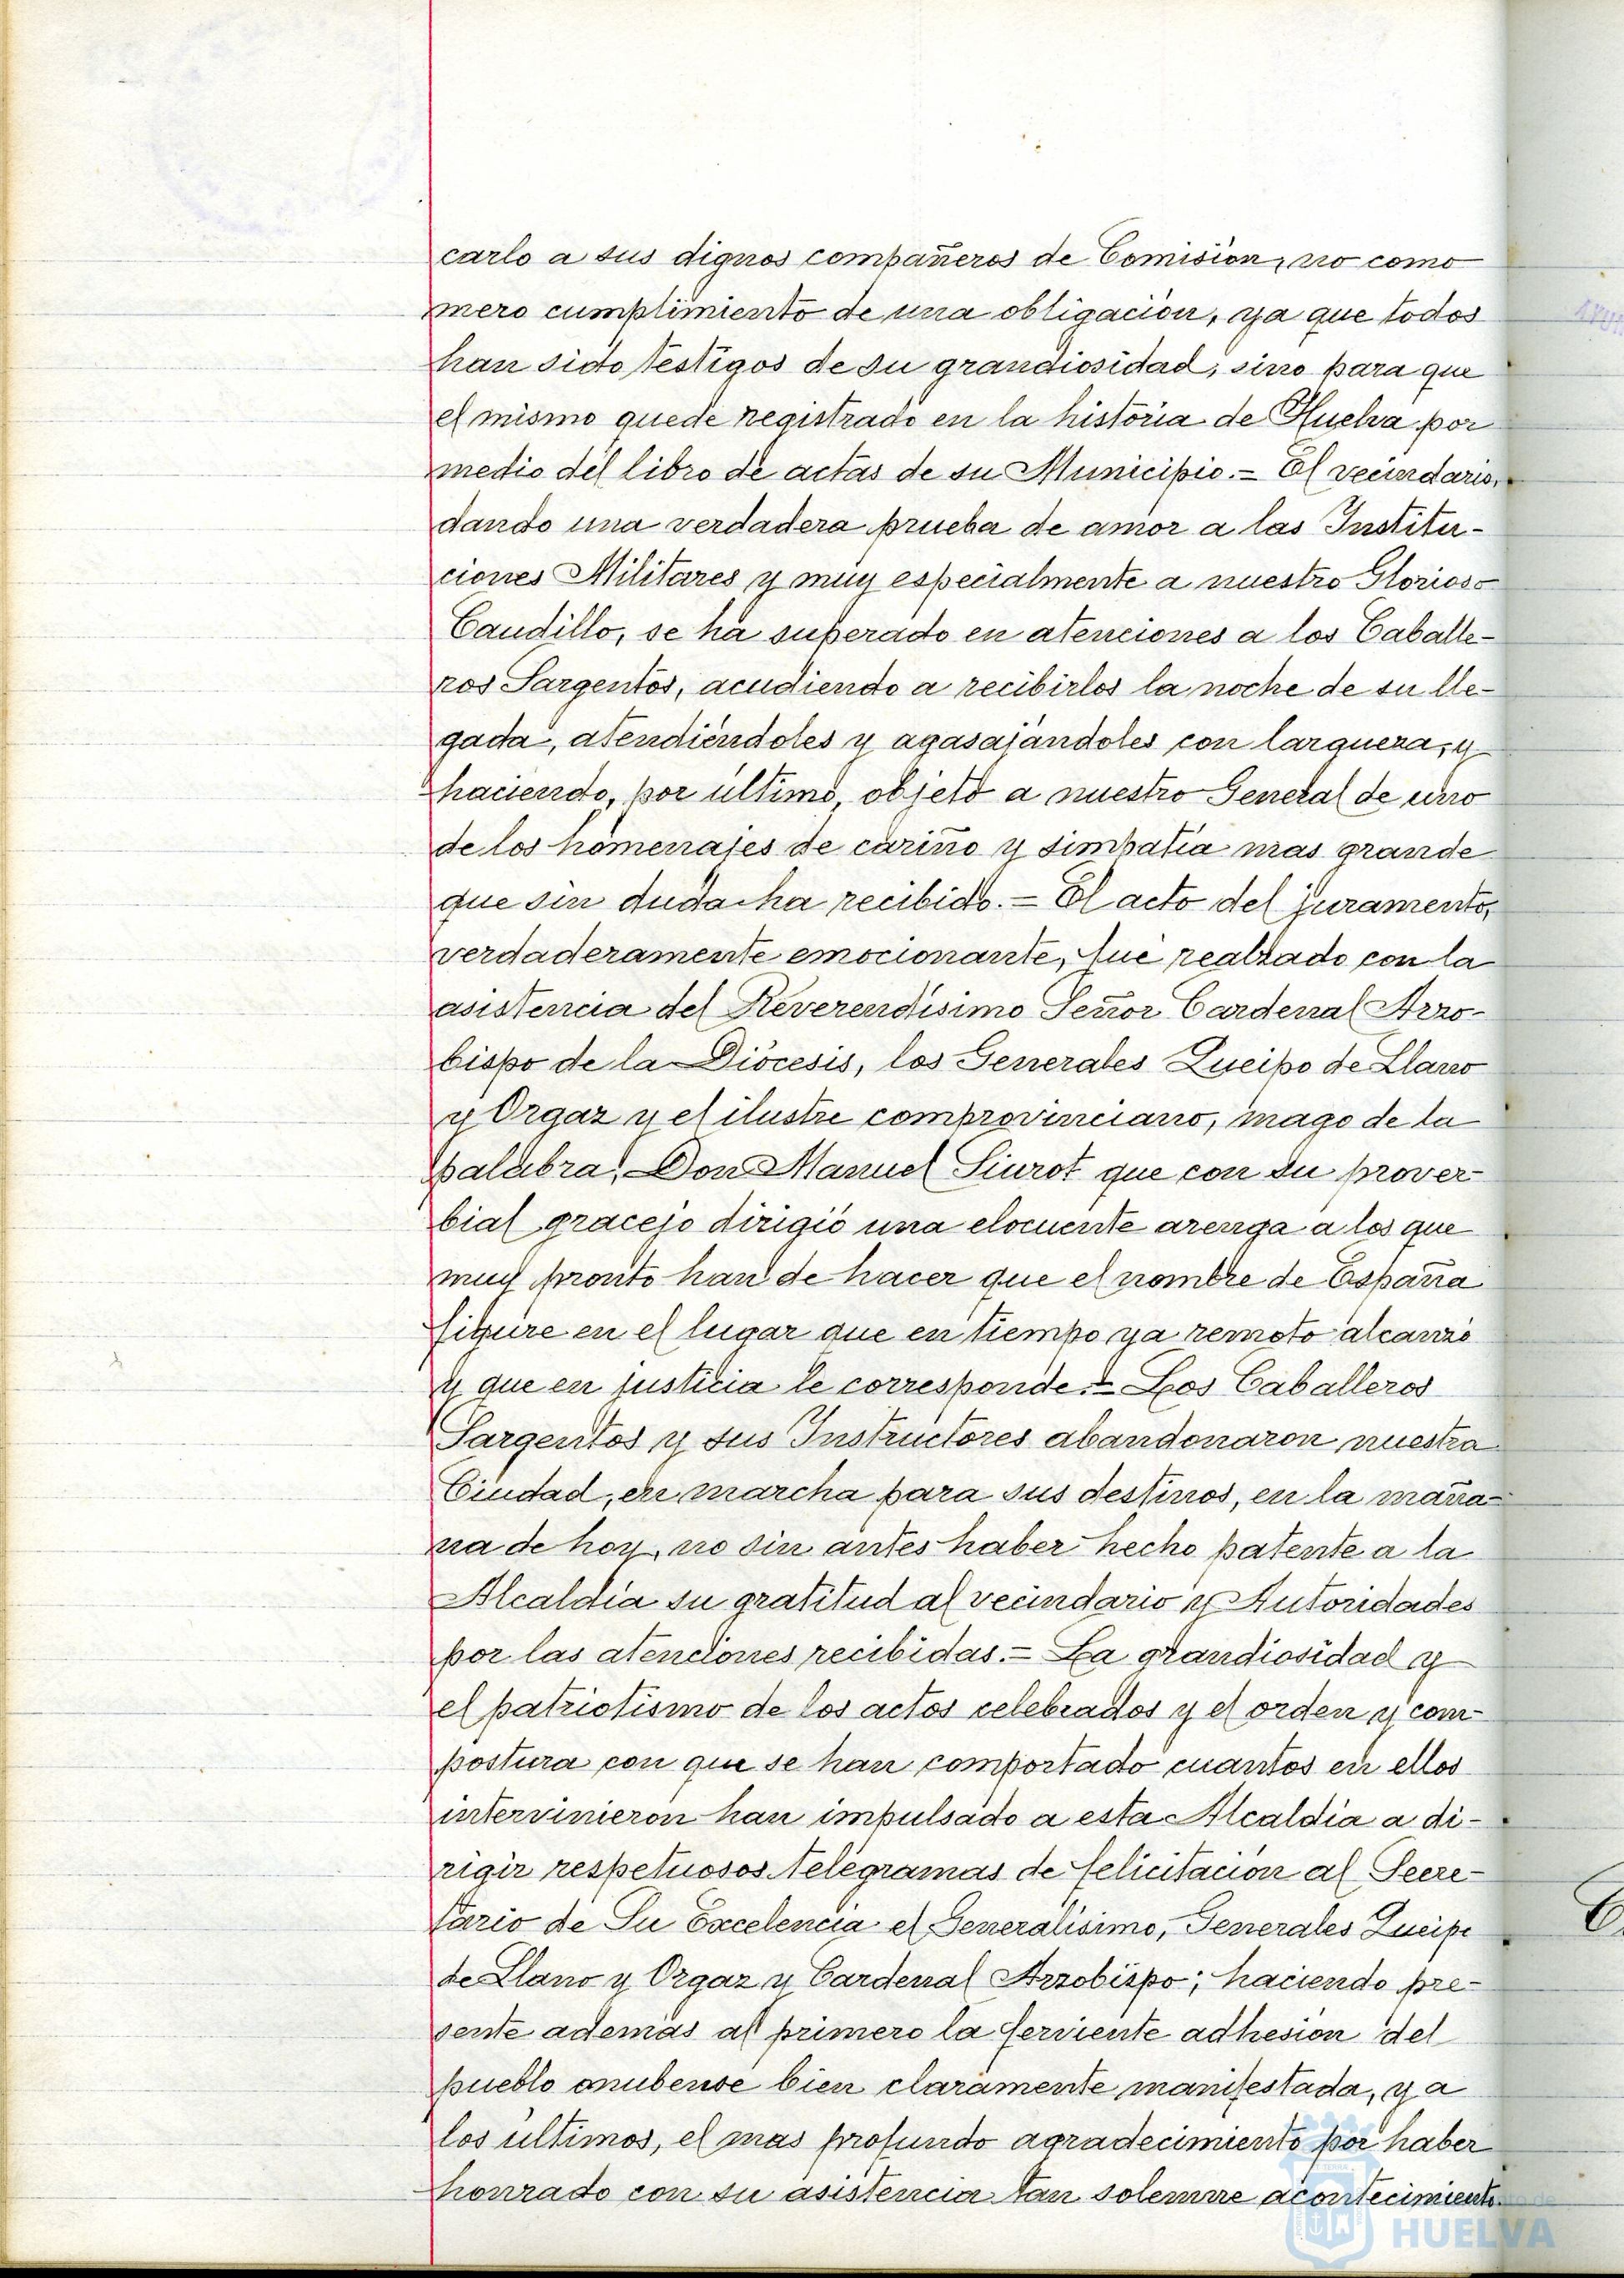 carlo a sus dignos compañeros de Comisión, no como
mero cumplimiento de una obligación, ya que todos
han sido testigos de su grandiosidad, sino para que
el mismo quede registrado en la historia de Huelva por
medio del libro de actas de su Municipio.= El vecindario,
dando una verdadera prueba de amor a las Institu-
ciones Militares y muy especialmente a nuestro Glorioso
Caudillo, se ha superado en atenciones a los Caballe-
ros Sargentos, acudiendo a recibirlos la noche de su lle-
gada, atendiéndoles y agasajándoles con largueza, y
haciendo, por último, objeto a nuestro General de uno
de los homenajes de cariño y simpatía mas grande
que sin duda ha recibido.= El acto del juramento,
verdaderamente emocionante, fué realzado con la
asistencia del Reverendísimo Señor Cardenal Arzo-
bispo de la Diócesis, los Generales Queipo de Llano
y Orgaz y el ilustre comprovinciano, mago de la
palabra, Don Manuel Siurot que con su prover-
bial gracejo dirigió una elocuente arenga a los que
muy pronto han de hacer que el nombre de España
figure en el lugar que en tiempo ya remoto alcanzó
y que en justicia le corresponde.= Los Caballeros
Sargentos y sus Instructores abandonaron nuestra
Ciudad, en marcha para sus destinos, en la maña-
na de hoy, no sin antes haber hecho patente a la
Alcaldía su gratitud al vecindario y Autoridades
por las atenciones recibidas.= La grandiosidad y
el patriotismo de los actos celebrados y el orden y com-
postura con que se han comportado cuantos en ellos
intervinieron han impulsado a esta Alcaldía a di-
rigir respetuosos telegramas de felicitación al Secre-
tario de Su Excelencia el Generalísimo, Generales Queipo
de Llano y Orgaz y Cardenal Arzobispo; haciendo pre-
sente además al primero la ferviente adhesión del
pueblo onubense bien claramente manifestada, y a
los últimos, el mas profundo agradecimiento por haber
honrado con su asistencia tan solemne acontecimiento.
HUELVA